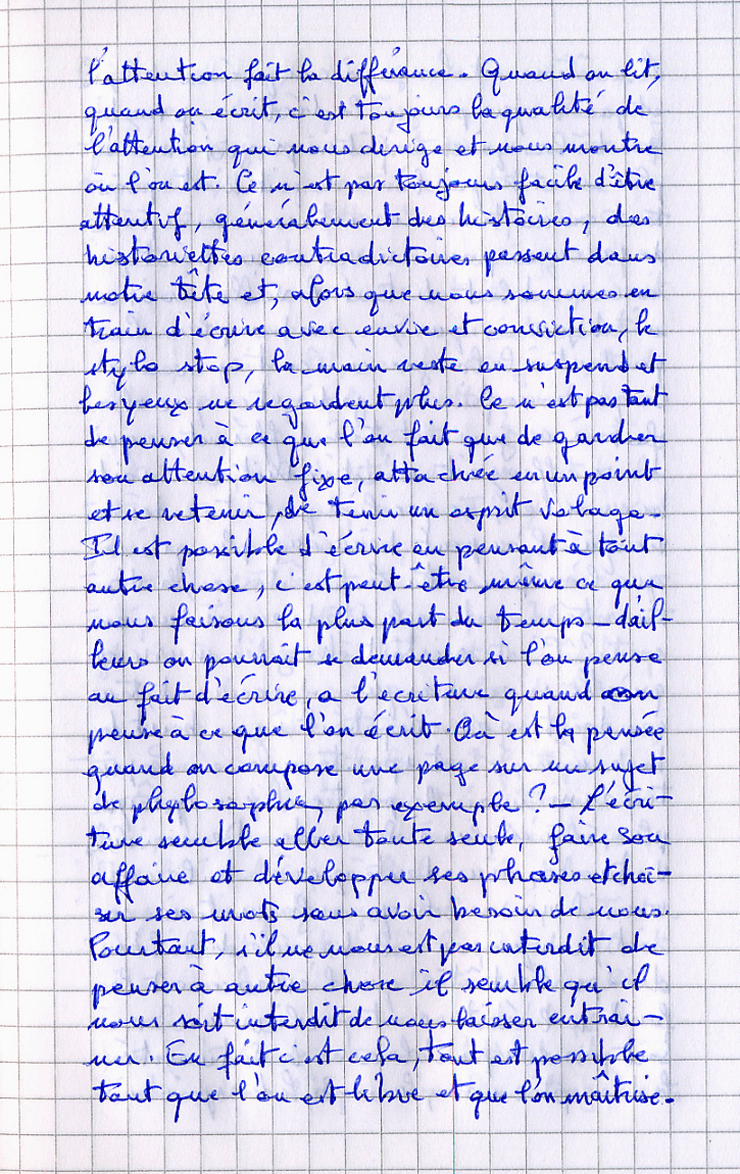 l'attention fait la différence. Quand on lit,
quand on écrit, c'est toujours la qualité de
l'attention qui nous dirige et nous montre
où l'on est. Ce n'est pas toujours facile d'être
attentif, généralement des histoires, des
historiettes contradictoires passent dans
notre tête et, alors que nous sommes en
train d'écrire avec envie et conviction, le
stylo stop, la main reste en suspend et
les yeux ne regardent plus. Ce n'est pas tant
de penser à ce que l'on fait que de garder
son attention fixe, attachée en un point
et se retenir, de tenir un esprit volage.
Il est possible d'écrire en pensant à tout
autre chose, c'est peut-être même ce que
nous faisons la plus part du temps – dail-
leurs on pourrait se demander si l'on pense
au fait d'écrire, a l'ecriture quand on
pense à ce que l'on écrit. Où est la pensée
quand on compose une page sur un sujet
de phylosophie, par exemple ? – L'écri-
ture semble aller toute seule, faire son
affaire et développer ses phrases et choi-
sir ses mots sans avoir besoin de nous.
Pourtant, s'il ne nous est pas interdit de
penser à autre chose il semble qu'il
nous soit interdit de nous laisser entrai-
ner. En fait c'est cela, tout est possible
tant que l'on est libre et que l'on maîtrise.